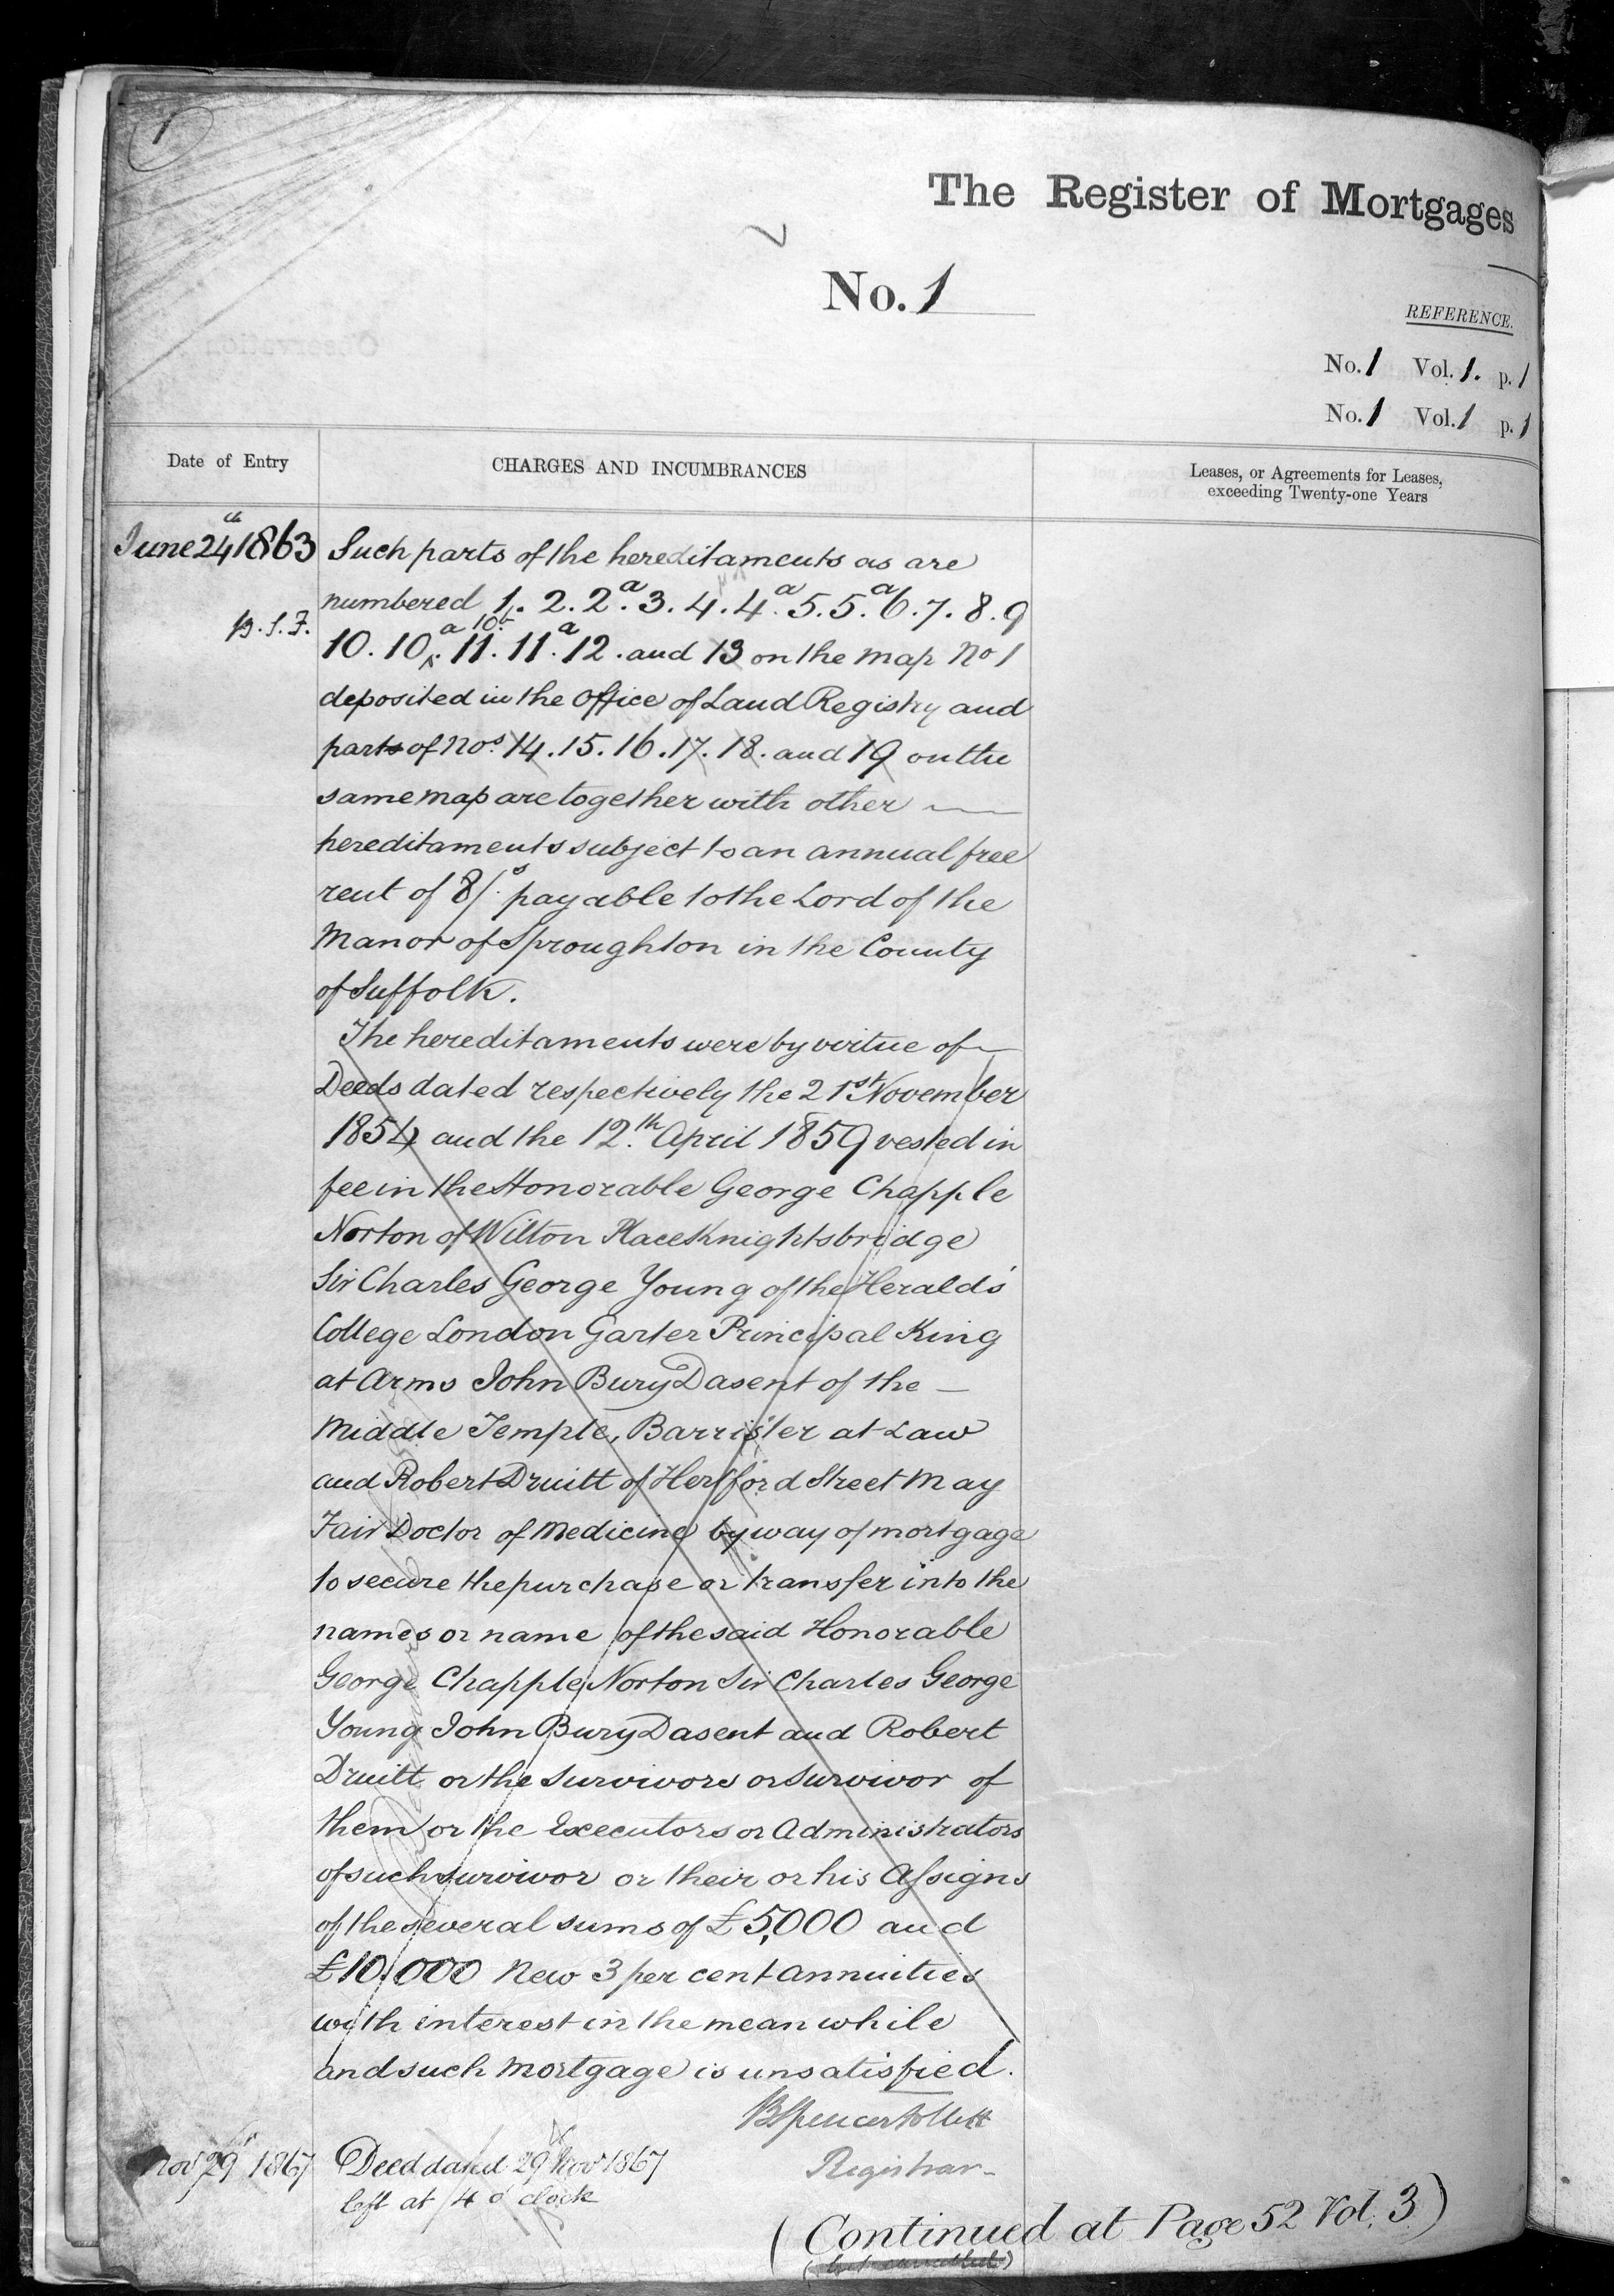 1
The Register of Mortgages
No. 1
REFERENCE.
No. 1 Vol. 1. p. 1
No. 1 Vol. 1 p. 1
Date of Entry
CHARGES AND INCUMBRANCES
Leases, or Agreements for Leases,
exceeding Twenty-one Years
June 24th 1863
B.S.F.
Such parts of the hereditaments as are
numbered 1. 2. 2a. 3. 4. 4a. 5. 5a. 6. 7. 8. 9
10. 10a. 10b. 11. 11a. 12. and 13 on the map No 1
deposited in the Office of Land Registry and
parts of Nos. 14. 15. 16. 17. 18. and 19 on the
same map are together with other
hereditaments subject to an annual free
rent of 8/s. payable to the Lord of the
Manor of Sproughton in the County
of Suffolk.
The hereditaments were by virtue of
Deeds dated respectively the 21st November
1854 and the 12th April 1859 vested in
fee in the Honorable George Chapple
Norton of Wilton Place Knightsbridge
Sir Charles George Young of the Heralds'
College London Garter Principal King
at Arms John Bury Dasent of the
Middle Temple, Barrister at Law
and Robert Druitt of Hertford Street May
Fair Doctor of Medicine by way of mortgage
to secure the purchase or transfer into the
names or name of the said Honorable
George Chapple Norton Sir Charles George
Young John Bury Dasent and Robert
Druitt or the survivors or survivor of
them or the Executors or Administrators
of such survivor or their or his Assigns
of the several sums of £5,000 and
£10,000 New 3 per cent annuities
with interest in the mean while
and such mortgage is unsatisfied.
B Spencer Follett
Registrar
Nov 29 1867
Deed dated 29 Nov 1867
left at 4 o'clock
(Continued at Page 52 Vol. 3)